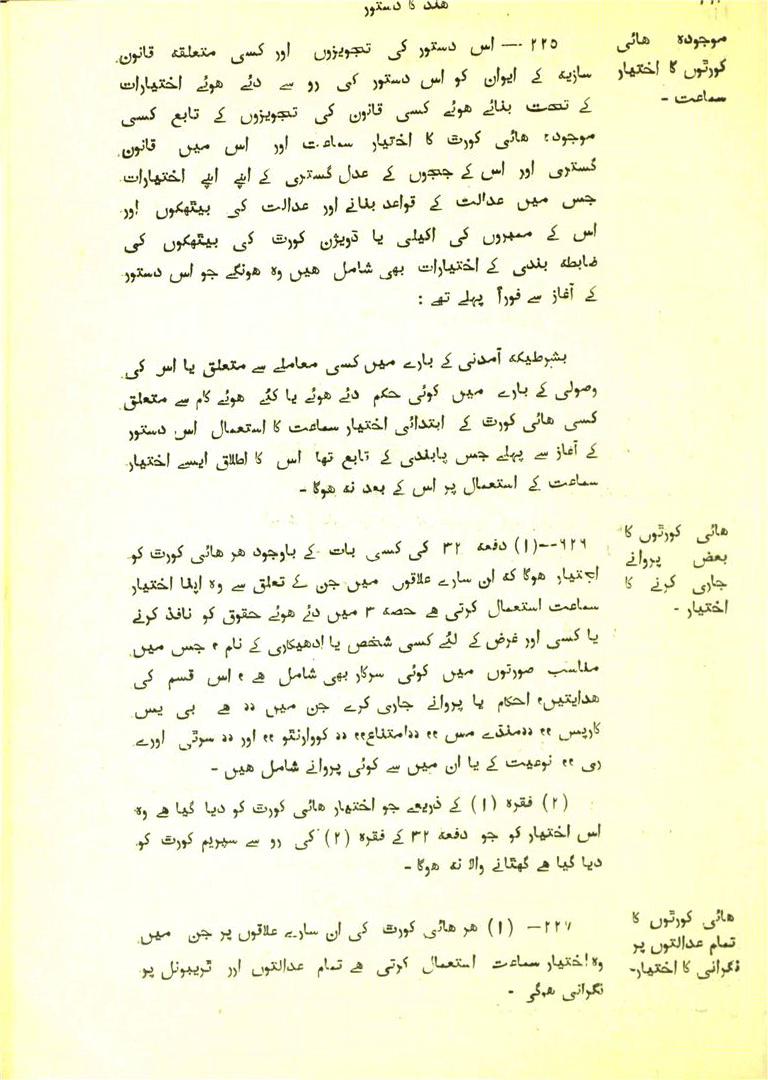 هند کا دستور
موجودہ هائی
کورٹوں کا اختیار
سماعت -
۲۲۵ — اس دستور کی تجویزوں اور کسی متعلقہ قانون
سازیہ کے ایوان کو اس دستور کی رو سے دئے هوئے اختیارات
کے تحت بنائے هوئے کسی قانون کی تجویزوں کے تابع کسی
موجودہ هائی کورٹ کا اختیار سماعت اور اس میں قانون
گستری اور اس کے ججوں کے عدل گستری کے اپنے اپنے اختیارات
جس میں عدالت کے قواعد بنانے اور عدالت کی بیٹھکوں اور
اس کے ممبروں کی اکیلی یا ڈویژن کورٹ کی بیٹھکوں کی
ضابطہ بندی کے اختیارات بھی شامل هیں وہ هونگے جو اس دستور
کے آغاز سے فوراً پہلے تھے :
بشرطیکہ آمدنی کے بارے میں کسی معاملے سے متعلق یا اس کی
وصولی کے بارے میں کوئی حکم دئے هوئے یا کئے هوئے کام سے متعلق
کسی هائی کورٹ کے ابتدائی اختیار سماعت کا استعمال اس دستور
کے آغاز سے پہلے جس پابندی کے تابع تھا اس کا اطلاق ایسے اختیار
سماعت کے استعمال پر اس کے بعد نہ هوگا -
هائی کورٹوں کا
بعض پروانے
جاری کرنے کا
اختیار -
۲۲۶--(۱) دفعہ ۳۲ کی کسی بات کے باوجود هر هائی کورٹ کو
اختیار هوگا کہ ان سارے علاقوں میں جن کے تعلق سے وہ اپنا اختیار
سماعت استعمال کرتی هے حصہ ۳ میں دئے هوئے حقوق کو نافذ کرنے
یا کسی اور غرض کے لئے کسی شخص یا ادھیکاری کے نام ، جس میں
مناسب صورتوں میں کوئی سرکار بھی شامل هے ، اس قسم کی
هدایتیں، احکام یا پروانے جاری کرے جن میں ,, هے بی یس
کارپس ,, ,,منڈے مس ,, ,,امتناع,, ,, کووارنٹو ,, اور ,, سرٹی اورے
ری ,, نوعیت کے یا ان میں سے کوئی پروانے شامل هیں -
(۲) فقرہ (۱) کے ذریعے جو اختیار هائی کورٹ کو دیا گیا هے وہ
اس اختیار کو جو دفعہ ۳۲ کے فقرہ (۲) کی رو سے سپریم کورٹ کو
دیا گیا هے گھٹانے والا نہ هوگا -
هائی کورٹوں کا
تمام عدالتوں پر
نگرانی کا اختیار-
۲۲۷— (۱) هر هائی کورٹ کی ان سارے علاقوں پر جن میں
وہ اختیار سماعت استعمال کرتی هے تمام عدالتوں اور ٹریبونل پر
نگرانی هوگی -